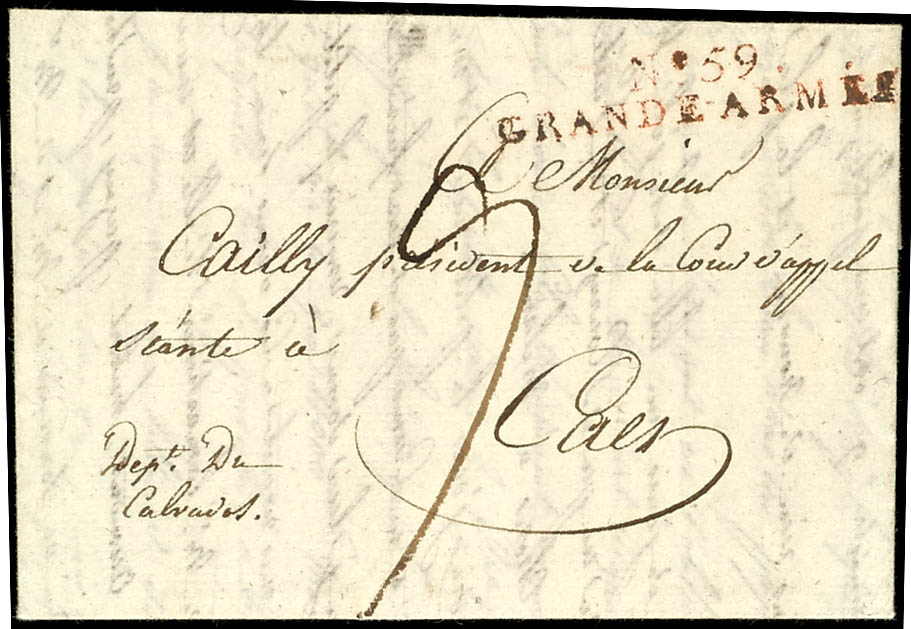 No 59.
GRANDE ARMÉE
A Monsieur
Cailly président de la Cour d'appel
Séante à
Caen
Dept. Du
Calvados.